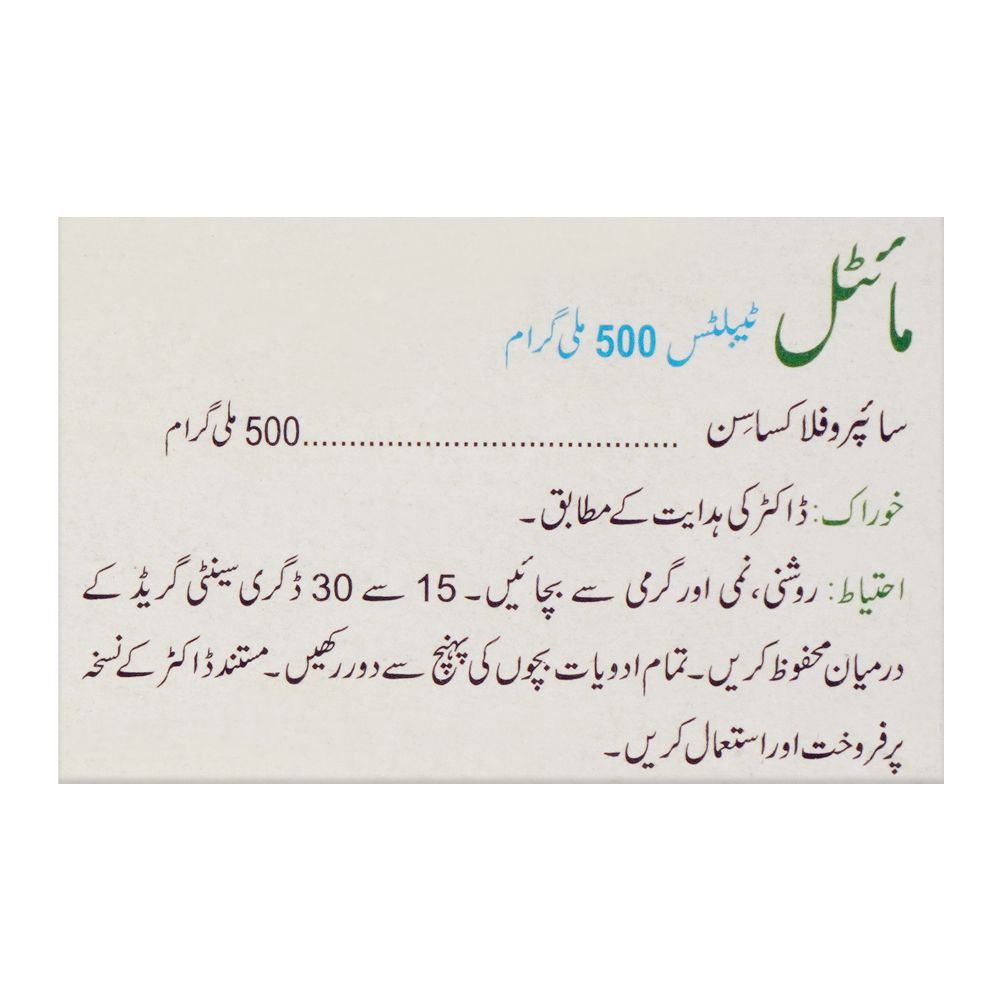 مائٹل ٹیبلٹس 500 ملی گرام
سائپروفلاکساسِن ........................................500 ملی گرام
خوراک: ڈاکٹر کی ہدایت کے مطابق۔
احتیاط: روشنی، نمی اور گرمی سے بچائیں۔ 15 سے 30 ڈگری سینٹی گریڈ کے
درمیان محفوظ کریں۔ تمام ادویات بچوں کی پہنچ سے دور رکھیں۔ مستند ڈاکٹر کے نسخہ
پر فروخت اور استعمال کریں۔